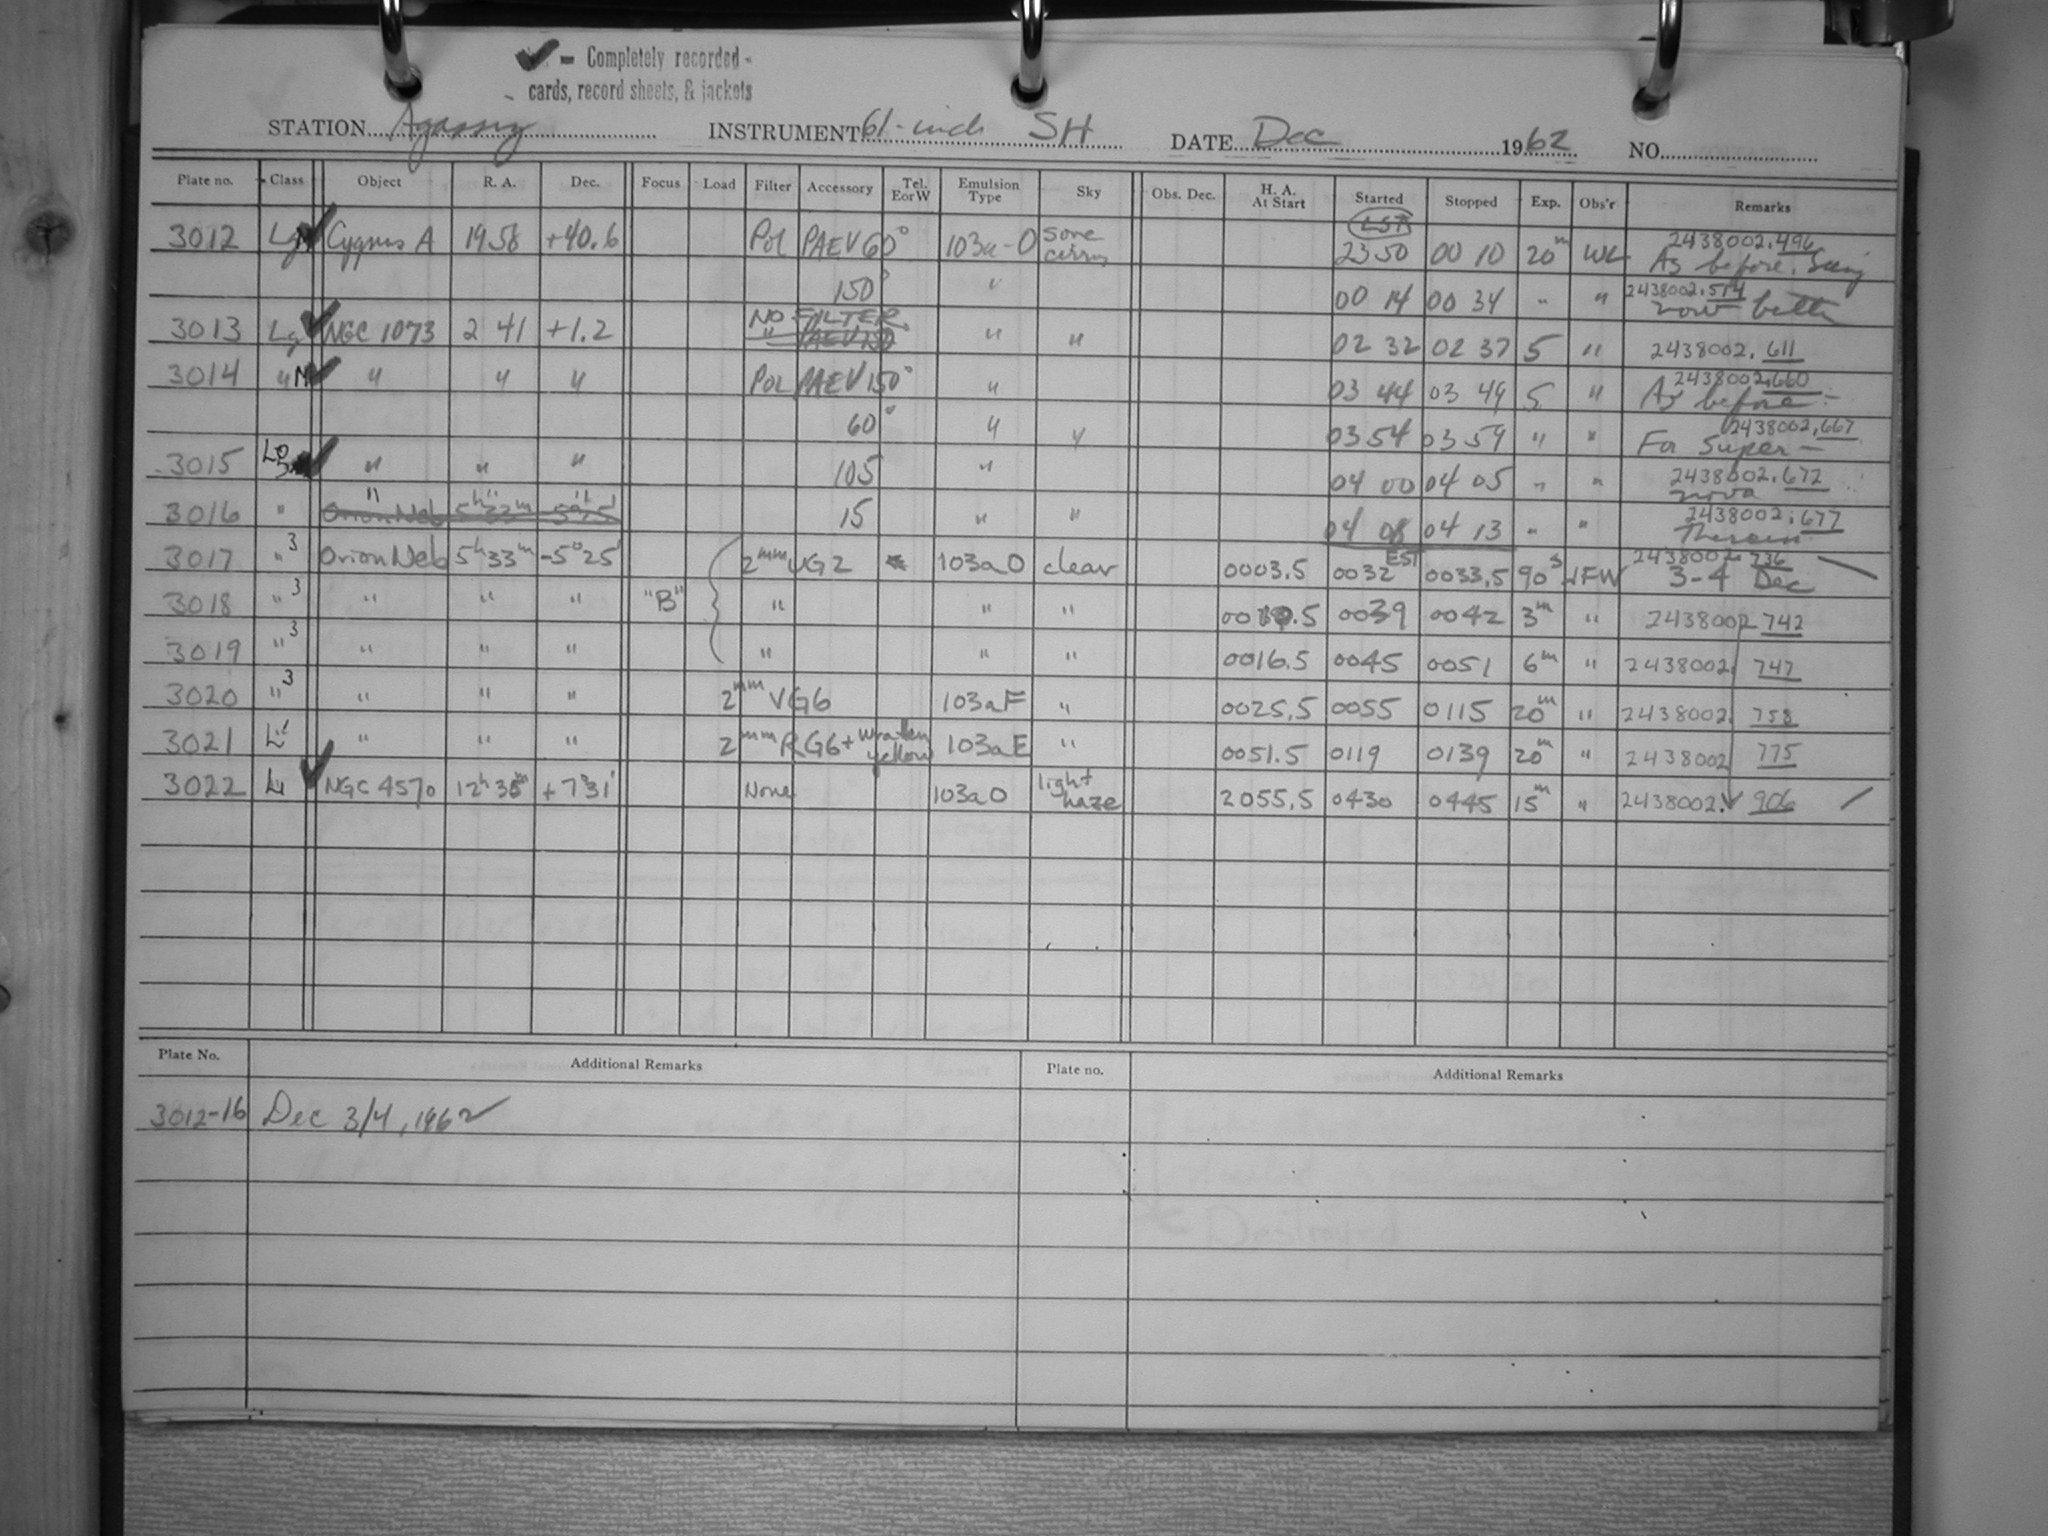 ✓ = Completely recorded -
cards, record sheets, & jackets
STATION Agassiz INSTRUMENT 61-inch SH DATE Dec 1962 NO.
Plate no. Class Object R. A. Dec. Focus Load Filter Accessory Tel. E or W Emulsion Type Sky Obs. Dec. H. A. At Start Started Stopped Exp. Obs'r Remarks
LST
3012 Cygnus A 19 58 +40.6 Pol PAEV 60° 103a-O some cirrus 23 50 00 10 20m WL 2438002.496 As before. Seeing
150° " 00 14 00 34 " " 2438002.514 now better
3013 Lg NGC 1073 2 41 +1.2 NO FILTER " " 02 32 02 37 5 " 2438002.611
3014 " " " " Pol PAEV 150° " 03 44 03 49 5 " 2438002.660 As before -
60° " " 03 54 03 59 " " 2438002.667 For Super -
3015 " " " 105 " 04 00 04 05 " " 2438002.672 nova
3016 " " " " 15 " " 04 08 04 13 " " 2438002.677 Therein
3017 "3 Orion Neb 5h33m -5°25' 2mm UG2 103aO clear 0003.5 0032 EST 0033.5 90s JFW 2438002.736 3-4 Dec
3018 "3 " " " "B" " " " 0039 0042 3m " 2438002 742
3019 "3 " " " " " " 0016.5 0045 0051 6m " 2438002. 747
3020 "3 " " " 2mm VG6 103aF " 0025.5 0055 0115 20m " 2438002. 758
3021 " " " 2mm RG6 + wratten yellow 103aE " 0051.5 0119 0139 20m " 2438002 775
3022 NGC 4570 12h 35m +7°31' None 103aO light haze 2055.5 0430 0445 15m " 2438002. 906
Plate No. Additional Remarks Plate no. Additional Remarks
3012-16 Dec 3/4, 1962